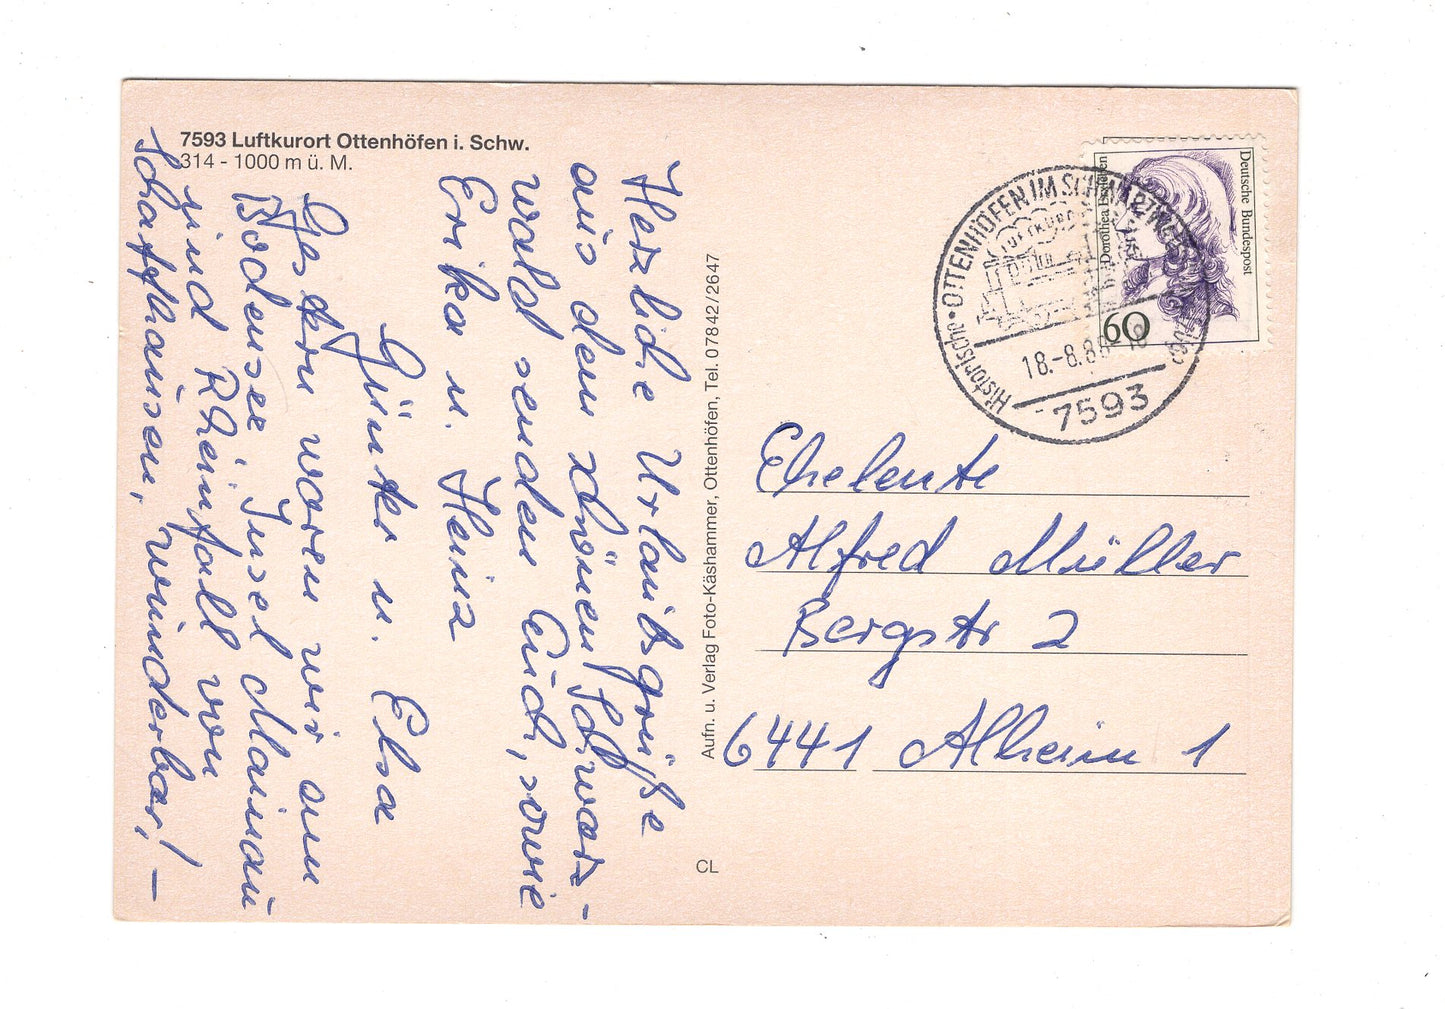 7593 Luftkurort Ottenhöfen i. Schw.
314 - 1000 m ü. M.
Herzliche Urlaubsgrüße
aus dem schönen Schwarz-
wald senden Euch, sowie
Erika u. Heinz
Günter u. Elsa
Gestern waren wir am
Bodensee, Insel Mainau
und Rheinfall von
Schaffhausen, wunderbar! –
Aufn. u. Verlag Foto-Käshammer, Ottenhöfen, Tel. 07842/2647
CL
Deutsche Bundespost
Dorothea Erxleben
60
OTTENHÖFEN IM SCHWARZWALD
LUFTKURORT
Historische
18.-8.88-18
7593
Eheleute
Alfred Müller
Bergstr 2
6441 Alheim 1